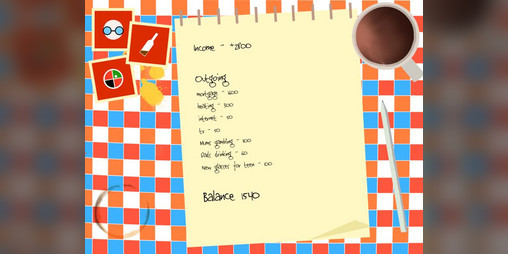 Income - +2800
Outgoing
mortgage - 600
heating - 300
internet - 50
tv - 50
Mums gambling - 100
Dads drinking - 60
New glasses for teen - 100
Balance 1540